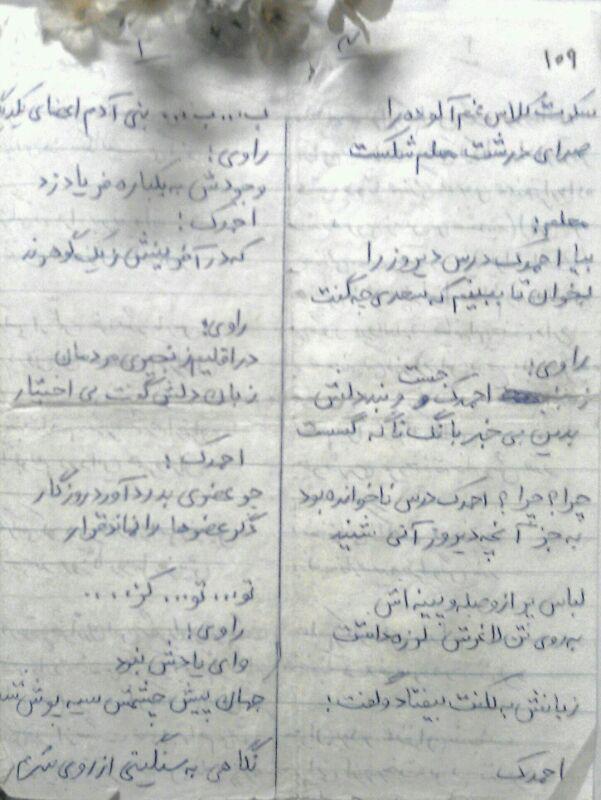 ۱۵۹
سکوت کلاس غم آلوده را
صدای درشت معلم شکست
معلم:
بیا احمدک درس دیروز را
بخوان تا ببینم که سعدی چه گفت
راوی:
ز جا احمدک جست و بند دلش
بدین بی خبر بانگ ناگه گسست
چرا؟ چرا؟ احمدک درس ناخوانده بود
به جز آنچه دیروز آنی شنید
لباس پر از وصله و پینه اش
به روی تن لاغرش لرزه داشت
زبانش به لکنت بیفتاد و گفت:
احمدک
۱
ب... ب... بنی آدم اعضای یکدیگ
راوی:
وجودش به یکباره فریاد زد
احمدک:
که در آفرینش ز یک گوهرند
راوی:
در اقلیم رنجوری مردمان
زبان دلش گفت بی اختیار
احمدک:
چو عضوی بدرد آورد روزگار
دگر عضوها را نماند قرار
تو... تو... کز....
راوی:
وای یادش نبود
جهان پیش چشمش سیه پوش شد
نگاهی به سنگینی از روی شرم